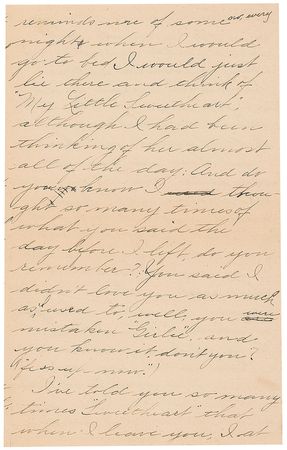 reminds me of some one, every
night when I would
go to bed I would just
lie there and think of
"My Little Sweetheart",
although I had been
thinking of her almost
all of the day. And do
you know I thou-
ght so many times of
what you said the
day before I left, do you
remember? You said I
didn't love you as much
as I used to, well, you were
mistaken "Girlie", and
you know it, don't you?
("fess up now.")
I've told you so many
times "Sweetheart" that
when I leave you, I at